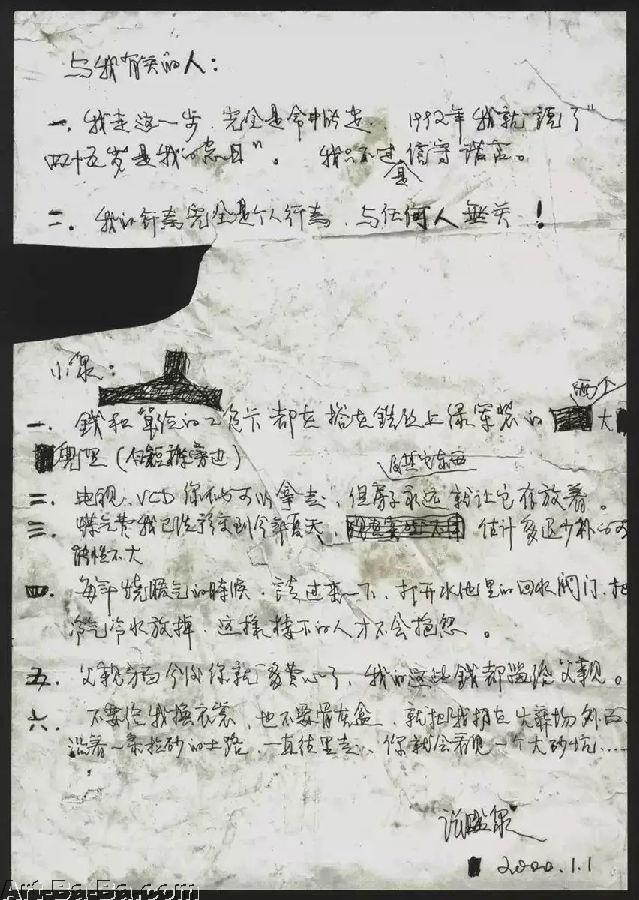 与我有关的人：
一、我走这一步，完全是命中所定。1992年我就说了"
四十五岁是我的忌日"。我只不过是信守诺言。
二、我的行为完全是个人行为，与任何人无关！
小泉：
一、钱和单位的工资卡都在搭在铁丝上绿军装的两个大
里（
及其它东西
二、电视、VCD你们可以拿走，但房子永远就让它存放着。
三、煤气费我已经预交到今年夏天，估计多退少补
弹性不大
四、每年烧暖气的时候，请过来一下，打开水池里的回水阀门，把
冷气冷水放掉，这样楼下的人才不会抱怨。
五、父亲方面今后你就多费心了，我的这些钱都留给父亲。
六、不要给我换衣裳，也不要骨灰盒，就把我扔在火葬场外面
沿着一条拉砂的土路，一直往里走，你就会看见一个大砂坑……
2000.1.1
Art-Ba-Ba.com